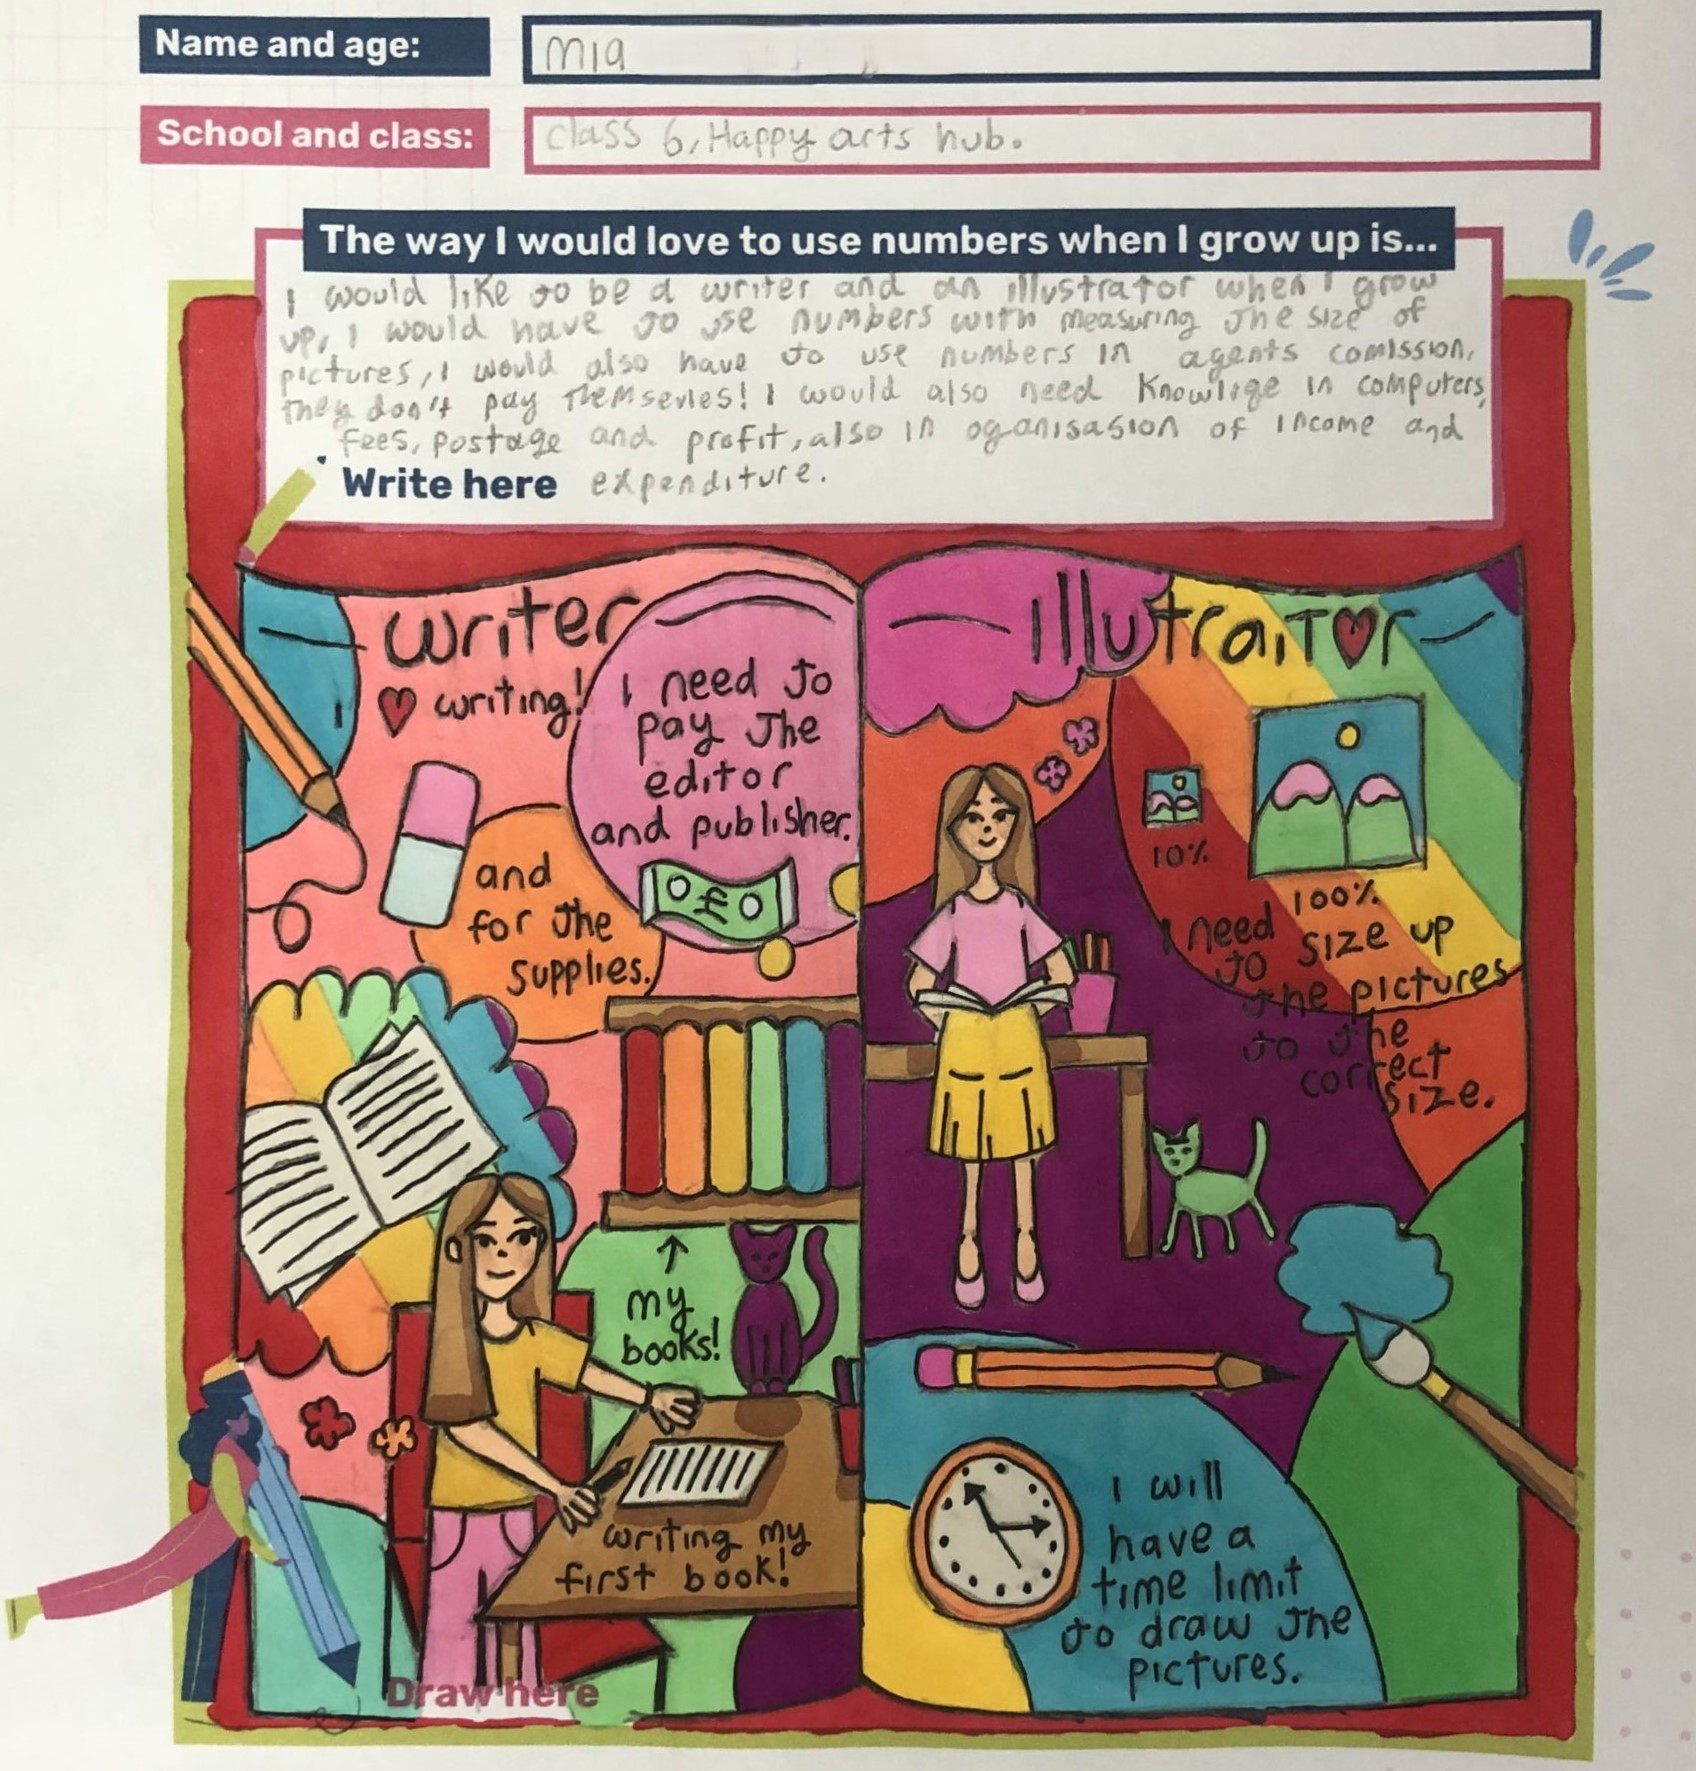 Name and age:
mia
School and class:
class 6, Happy arts hub.
The way I would love to use numbers when I grow up is...
I would like to be a writer and an illustrator when I grow
up, I would have to use numbers with measuring the size of
pictures, I would also have to use numbers in agents comission,
they don't pay themsevles! I would also need Knowlige in computers,
fees, postage and profit, also in oganisasion of income and
Write here expenditure.
writer
writing!
I need to
pay the
editor
and publisher.
£
and
for the
supplies.
my
books!
writing my
first book!
Draw here
illutraitor
10%
100%
I need
to size up
the pictures
to the
correct
size.
I will
have a
time limit
to draw the
pictures.